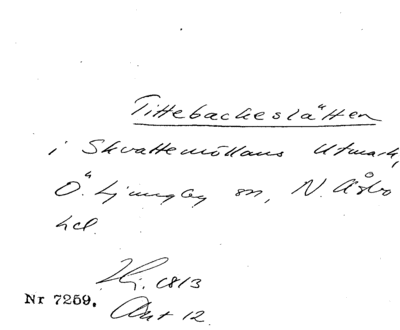 Tittebackeslätten
i Skvattemöllans Utmark,
Ö. Ljungby sn, N. Åsbo
hd.
1813
Nr 7259. Akt 12.